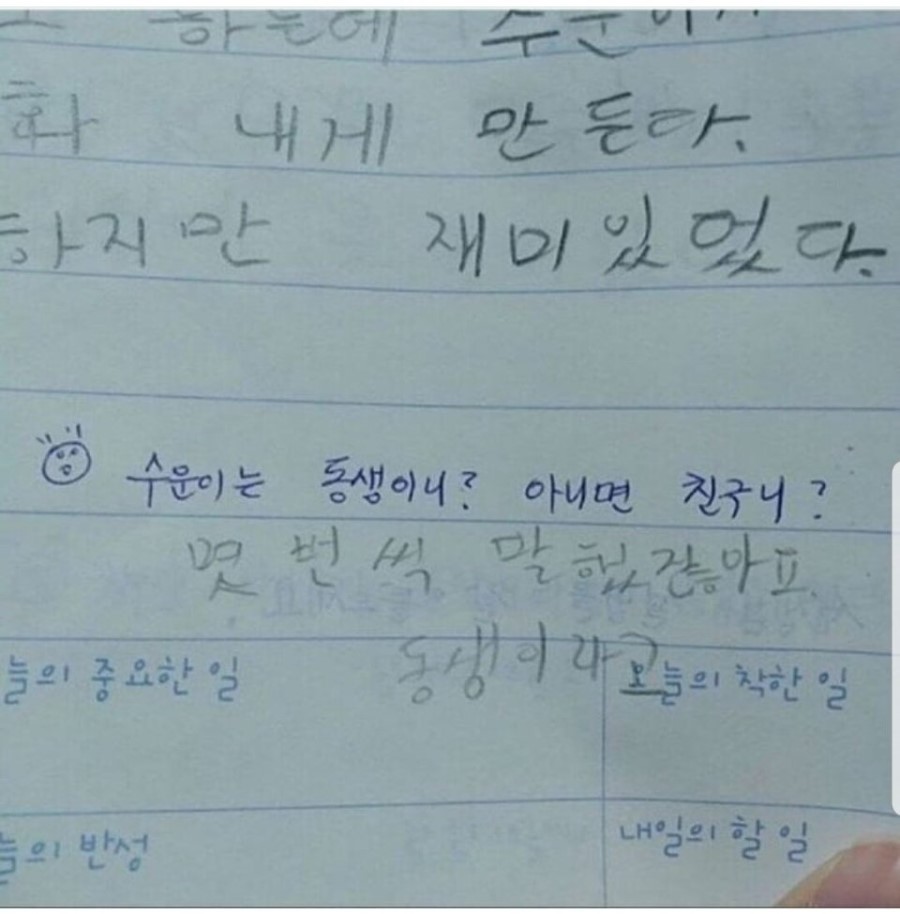 하는데 수운이가
화 내게 만든다.
하지만 재미있었다.
수운이는 동생이니? 아니면 친구니?
몇 번씩 말했잖아요.
동생이라고
늘의 중요한 일 오늘의 착한 일
늘의 반성 내일의 할 일